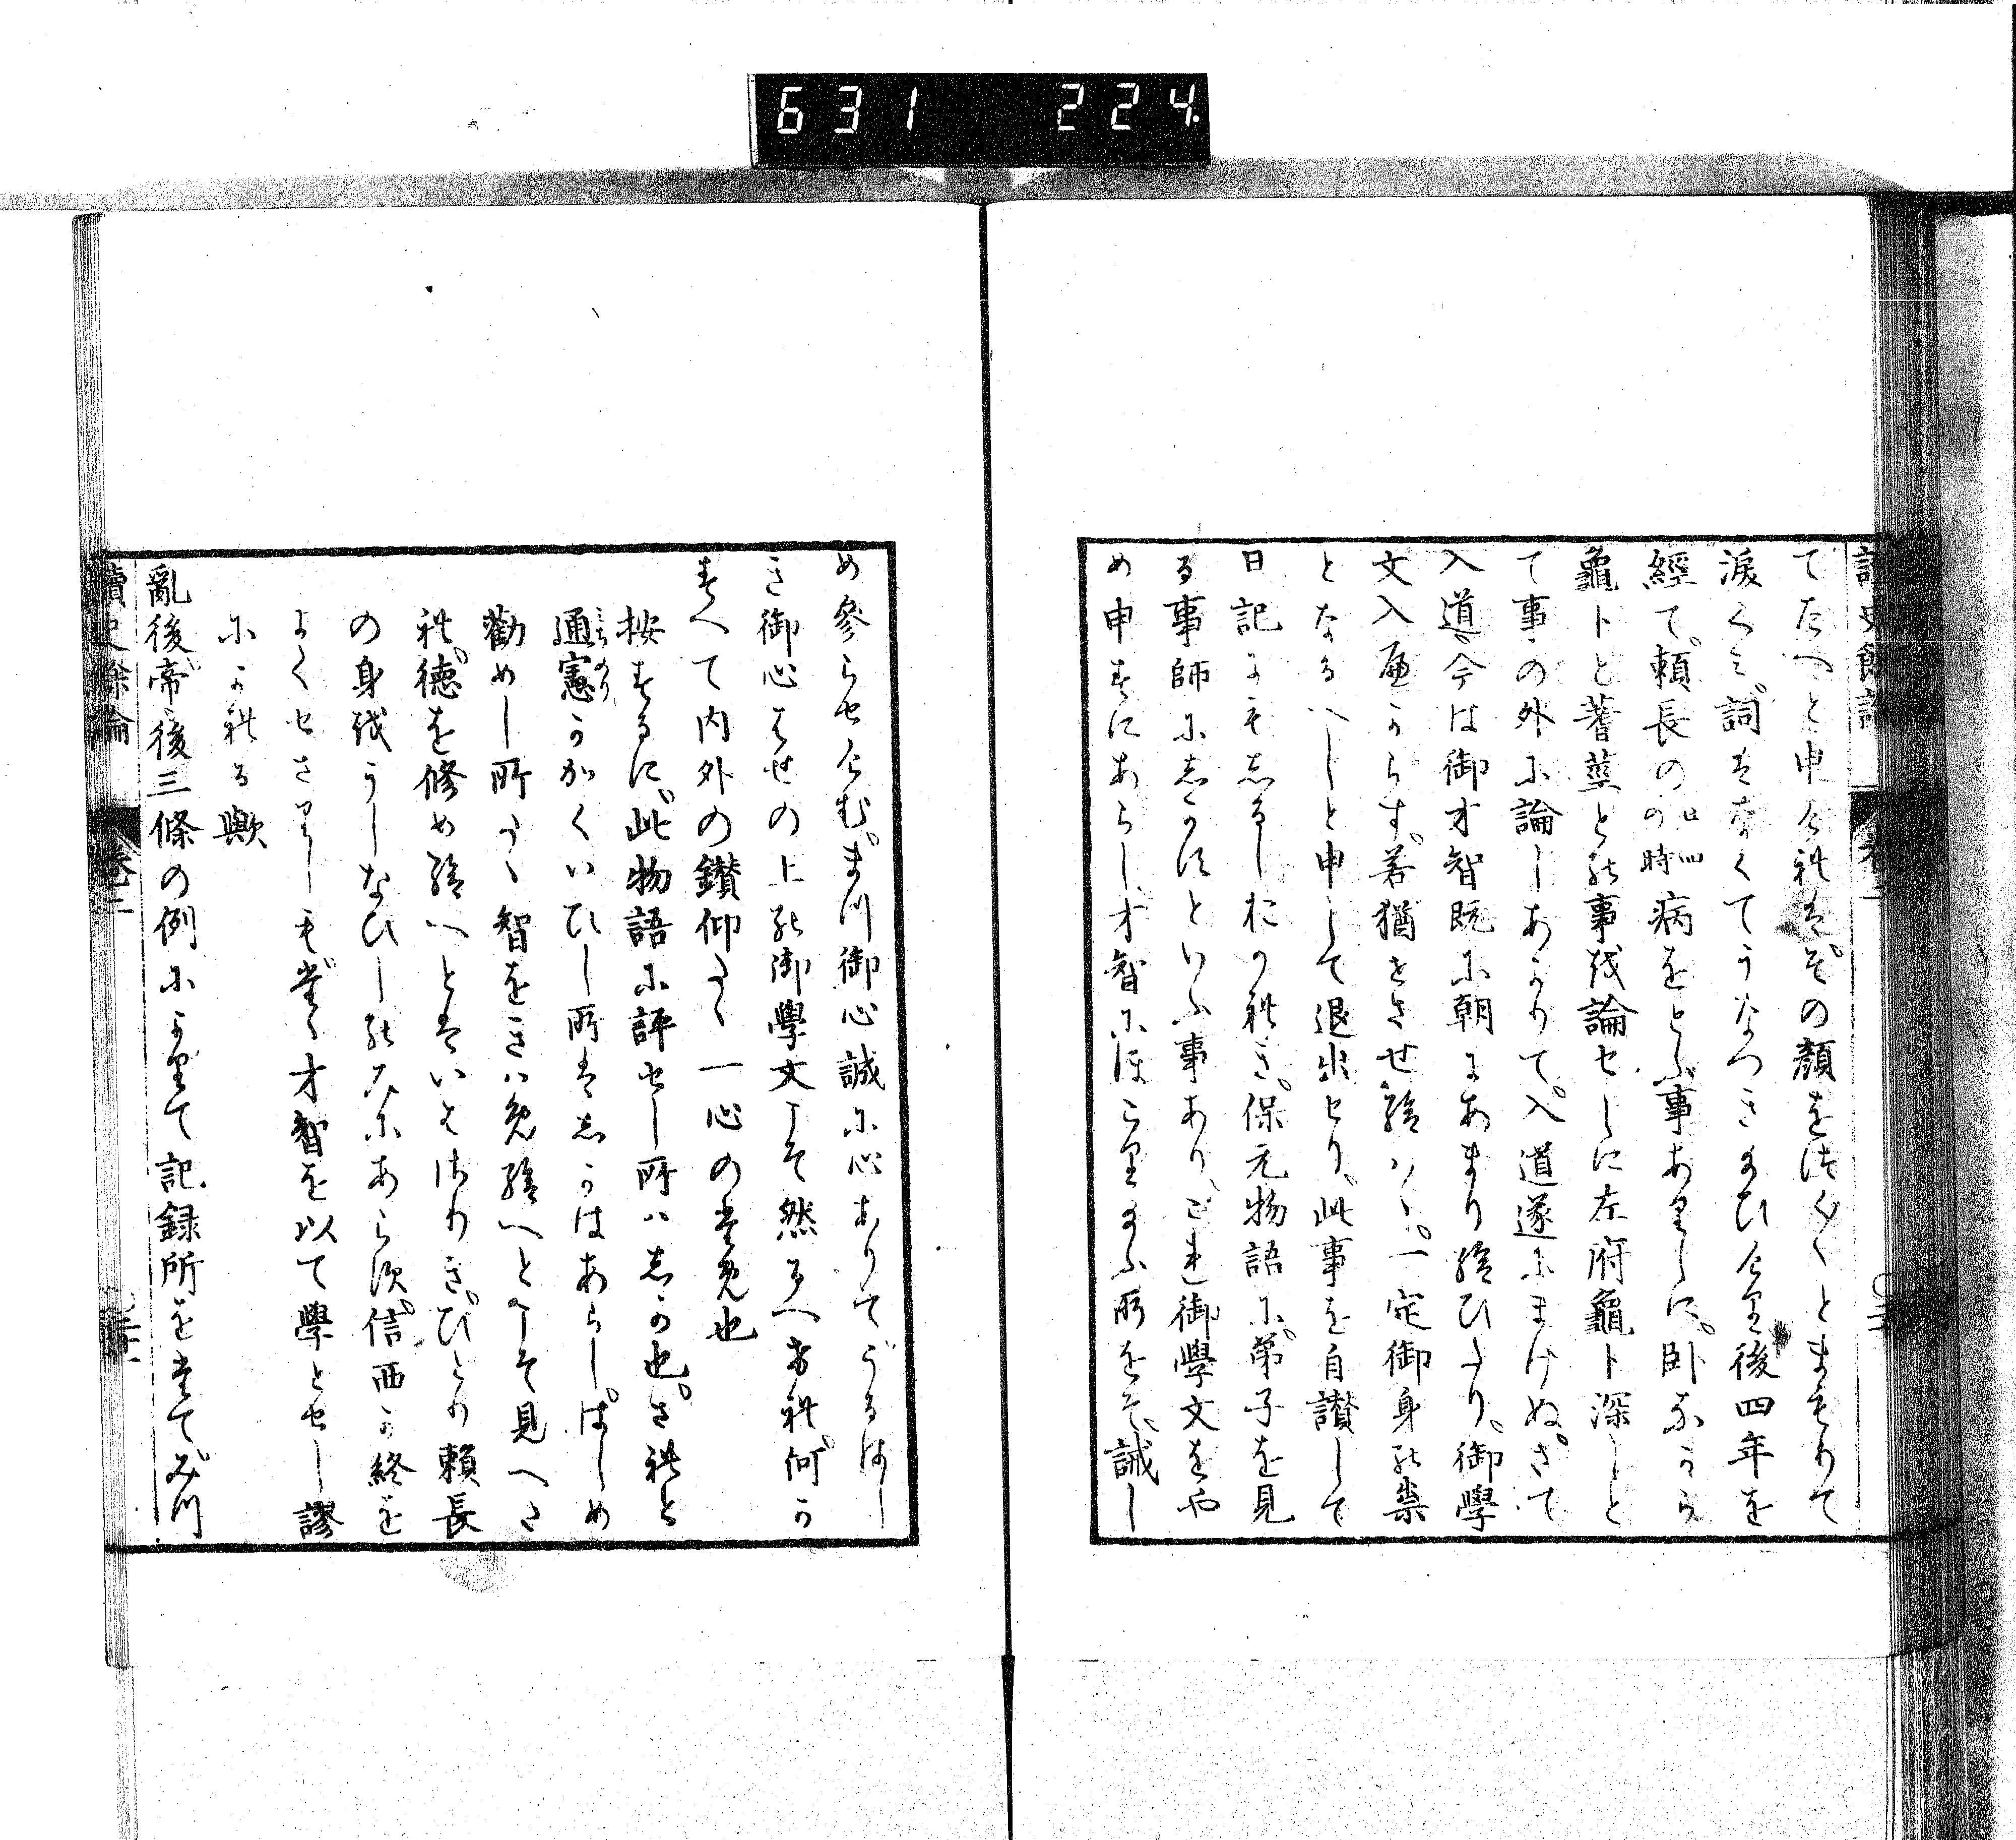 631 224
てたへと申されはその顔をつく〱とまもりて
涙くみ詞はなくてうなつき給ひたり後四年を
經て頼長の の時 病をとふ事ありしに卧なから
龜卜と蓍莖との事を論せしに左府龜卜深しと
て事の外に論しあかりて入道遂にまけぬさて
入道今は御才智既に朝にあまり給ひたり御學
文入へからす若猶せさせ給はゝ一定御身の祟
となるへしと申して退出せり此事を自讃して
日記にもしるしおかれき保元物語に弟子を見
る事師にしかすといふ事ありこれ御學文をや
め申すにあらし才智にほこり給ふ所をそ誡し
め參らせけむまつ御心誠に心ありてうるはし
き御心はせの上の御學文こそ然るへけれ何か
すへて内外の鑚仰たゝ一心のため也
按するに此物語に評せし所ハしか也されと
通憲かかくいひし所はしかはあらしはしめ
勸めし所たゝ智をきはめ給へとこそ見へさ
れ徳を修め給へとはいはさりきひとり頼長
の身をうしなひしのみにあらす信西か終を
よくせさりしもたゝ才智を以て學とせし謬
によれる歟
亂後帝後三條の例によりて記録所をたてみつ
讀史餘論 卷二